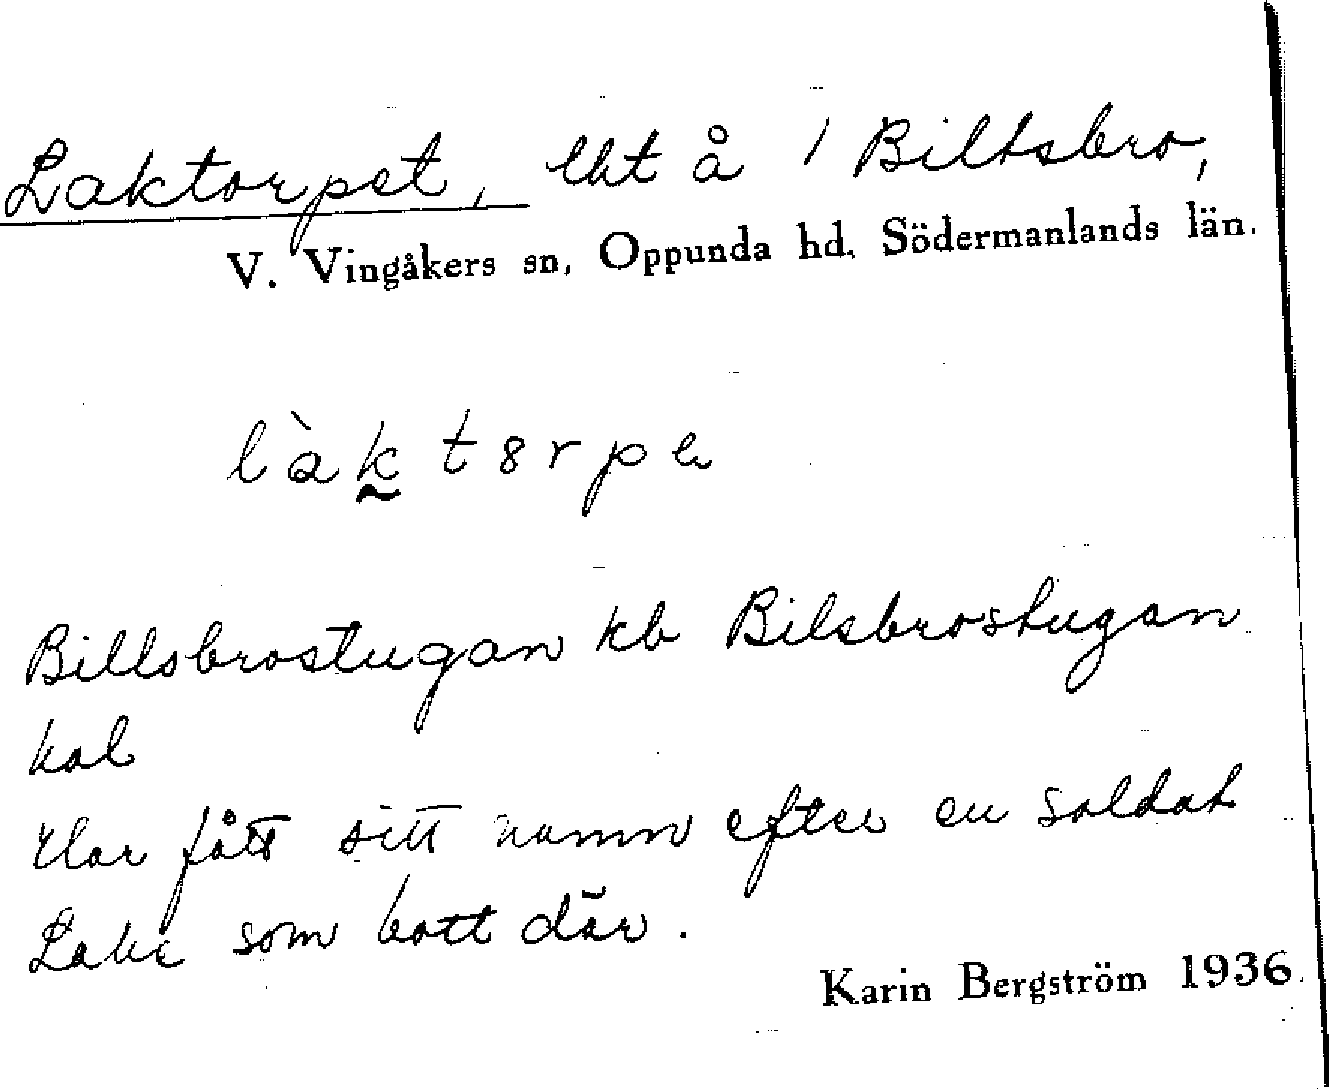 Laktorpet, lht å 1 Billsbro,
V. Vingåkers sn, Oppunda hd, Södermanlands län.
làk̰ t8rpe
Billsbrostugan kb Bilsbrostugan
hal
Har fått sitt namn efter en soldat
Lake som bott där.
Karin Bergström 1936